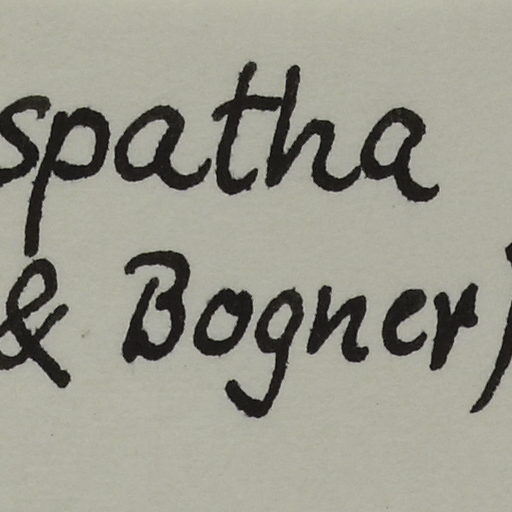 spatha
& Bogner)